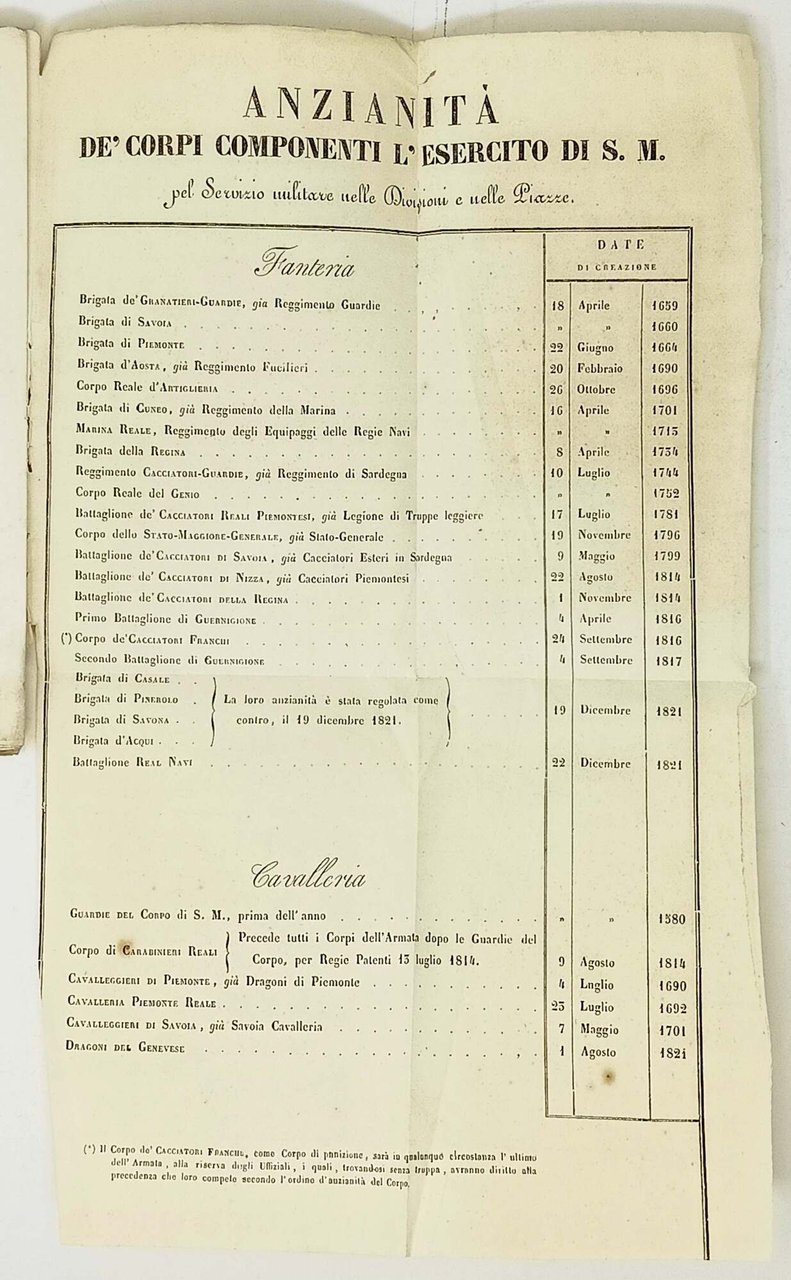 ANZIANITÀ
DE' CORPI COMPONENTI L'ESERCITO DI S. M.
pel Servizio militare nelle Divisioni e nelle Piazze.
DATE
DI CREAZIONE
Fanteria
Brigata de' GRANATIERI-GUARDIE, già Reggimento Guardie . . . 18 Aprile 1659
Brigata di SAVOIA . . . » » 1660
Brigata di PIEMONTE . . . 22 Giugno 1664
Brigata d'AOSTA, già Reggimento Fucilieri . . . 20 Febbraio 1690
Corpo Reale d'ARTIGLIERIA . . . 26 Ottobre 1696
Brigata di CUNEO, già Reggimento della Marina . . . 16 Aprile 1701
MARINA REALE, Reggimento degli Equipaggi delle Regie Navi . . . » » 1713
Brigata della REGINA . . . 8 Aprile 1734
Reggimento CACCIATORI-GUARDIE, già Reggimento di Sardegna . . . 10 Luglio 1744
Corpo Reale del GENIO . . . » » 1752
Battaglione de' CACCIATORI REALI PIEMONTESI, già Legione di Truppe leggiere . . . 17 Luglio 1781
Corpo dello STATO-MAGGIORE-GENERALE, già Stato-Generale . . . 19 Novembre 1796
Battaglione de' CACCIATORI DI SAVOIA, già Cacciatori Esteri in Sardegna . . . 9 Maggio 1799
Battaglione de' CACCIATORI DI NIZZA, già Cacciatori Piemontesi . . . 22 Agosto 1814
Battaglione de' CACCIATORI DELLA REGINA . . . 1 Novembre 1814
Primo Battaglione di GUERNIGIONE . . . 4 Aprile 1816
(*) Corpo de' CACCIATORI FRANCHI . . . 24 Settembre 1816
Secondo Battaglione di GUERNIGIONE . . . 4 Settembre 1817
Brigata di CASALE . .
Brigata di PINEROLO . La loro anzianità è stata regolata come
19 Dicembre 1821
Brigata di SAVONA . . contro, il 19 dicembre 1821.
Brigata d'ACQUI . . .
Battaglione REAL NAVI . . . 22 Dicembre 1821
Cavalleria
GUARDIE DEL CORPO di S. M., prima dell'anno . . . » » 1580
Corpo di CARABINIERI REALI Precede tutti i Corpi dell'Armata dopo le Guardie del
Corpo, per Regie Patenti 13 luglio 1814. 9 Agosto 1814
CAVALLEGGIERI DI PIEMONTE, già Dragoni di Piemonte . . . 4 Luglio 1690
CAVALLERIA PIEMONTE REALE . . . 23 Luglio 1692
CAVALLEGGIERI DI SAVOIA, già Savoia Cavalleria . . . 7 Maggio 1701
DRAGONI DEL GENEVESE . . . 1 Agosto 1821
(*) Il Corpo de' CACCIATORI FRANCHI, come Corpo di punizione, sarà in qualunque circostanza l'ultimo
dell'Armata, alla riserva degli Uffiziali, i quali, trovandosi senza truppa, avranno diritto alla
precedenza che loro compete secondo l'ordine d'anzianità del Corpo.